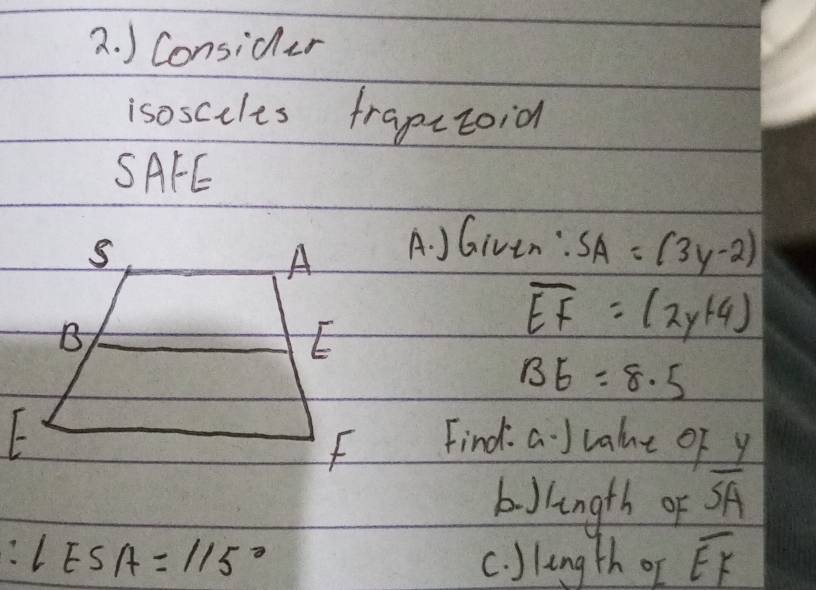 2.) Consider
isosceles trapezoid
SAFE
S A
B E
E F
A.) Given: SA = (3y-2)
EF = (2y+4)
BE = 8.5
Find: a.) value of y
b.) length of SA
c.) length of EF
: ∠ESA = 115°